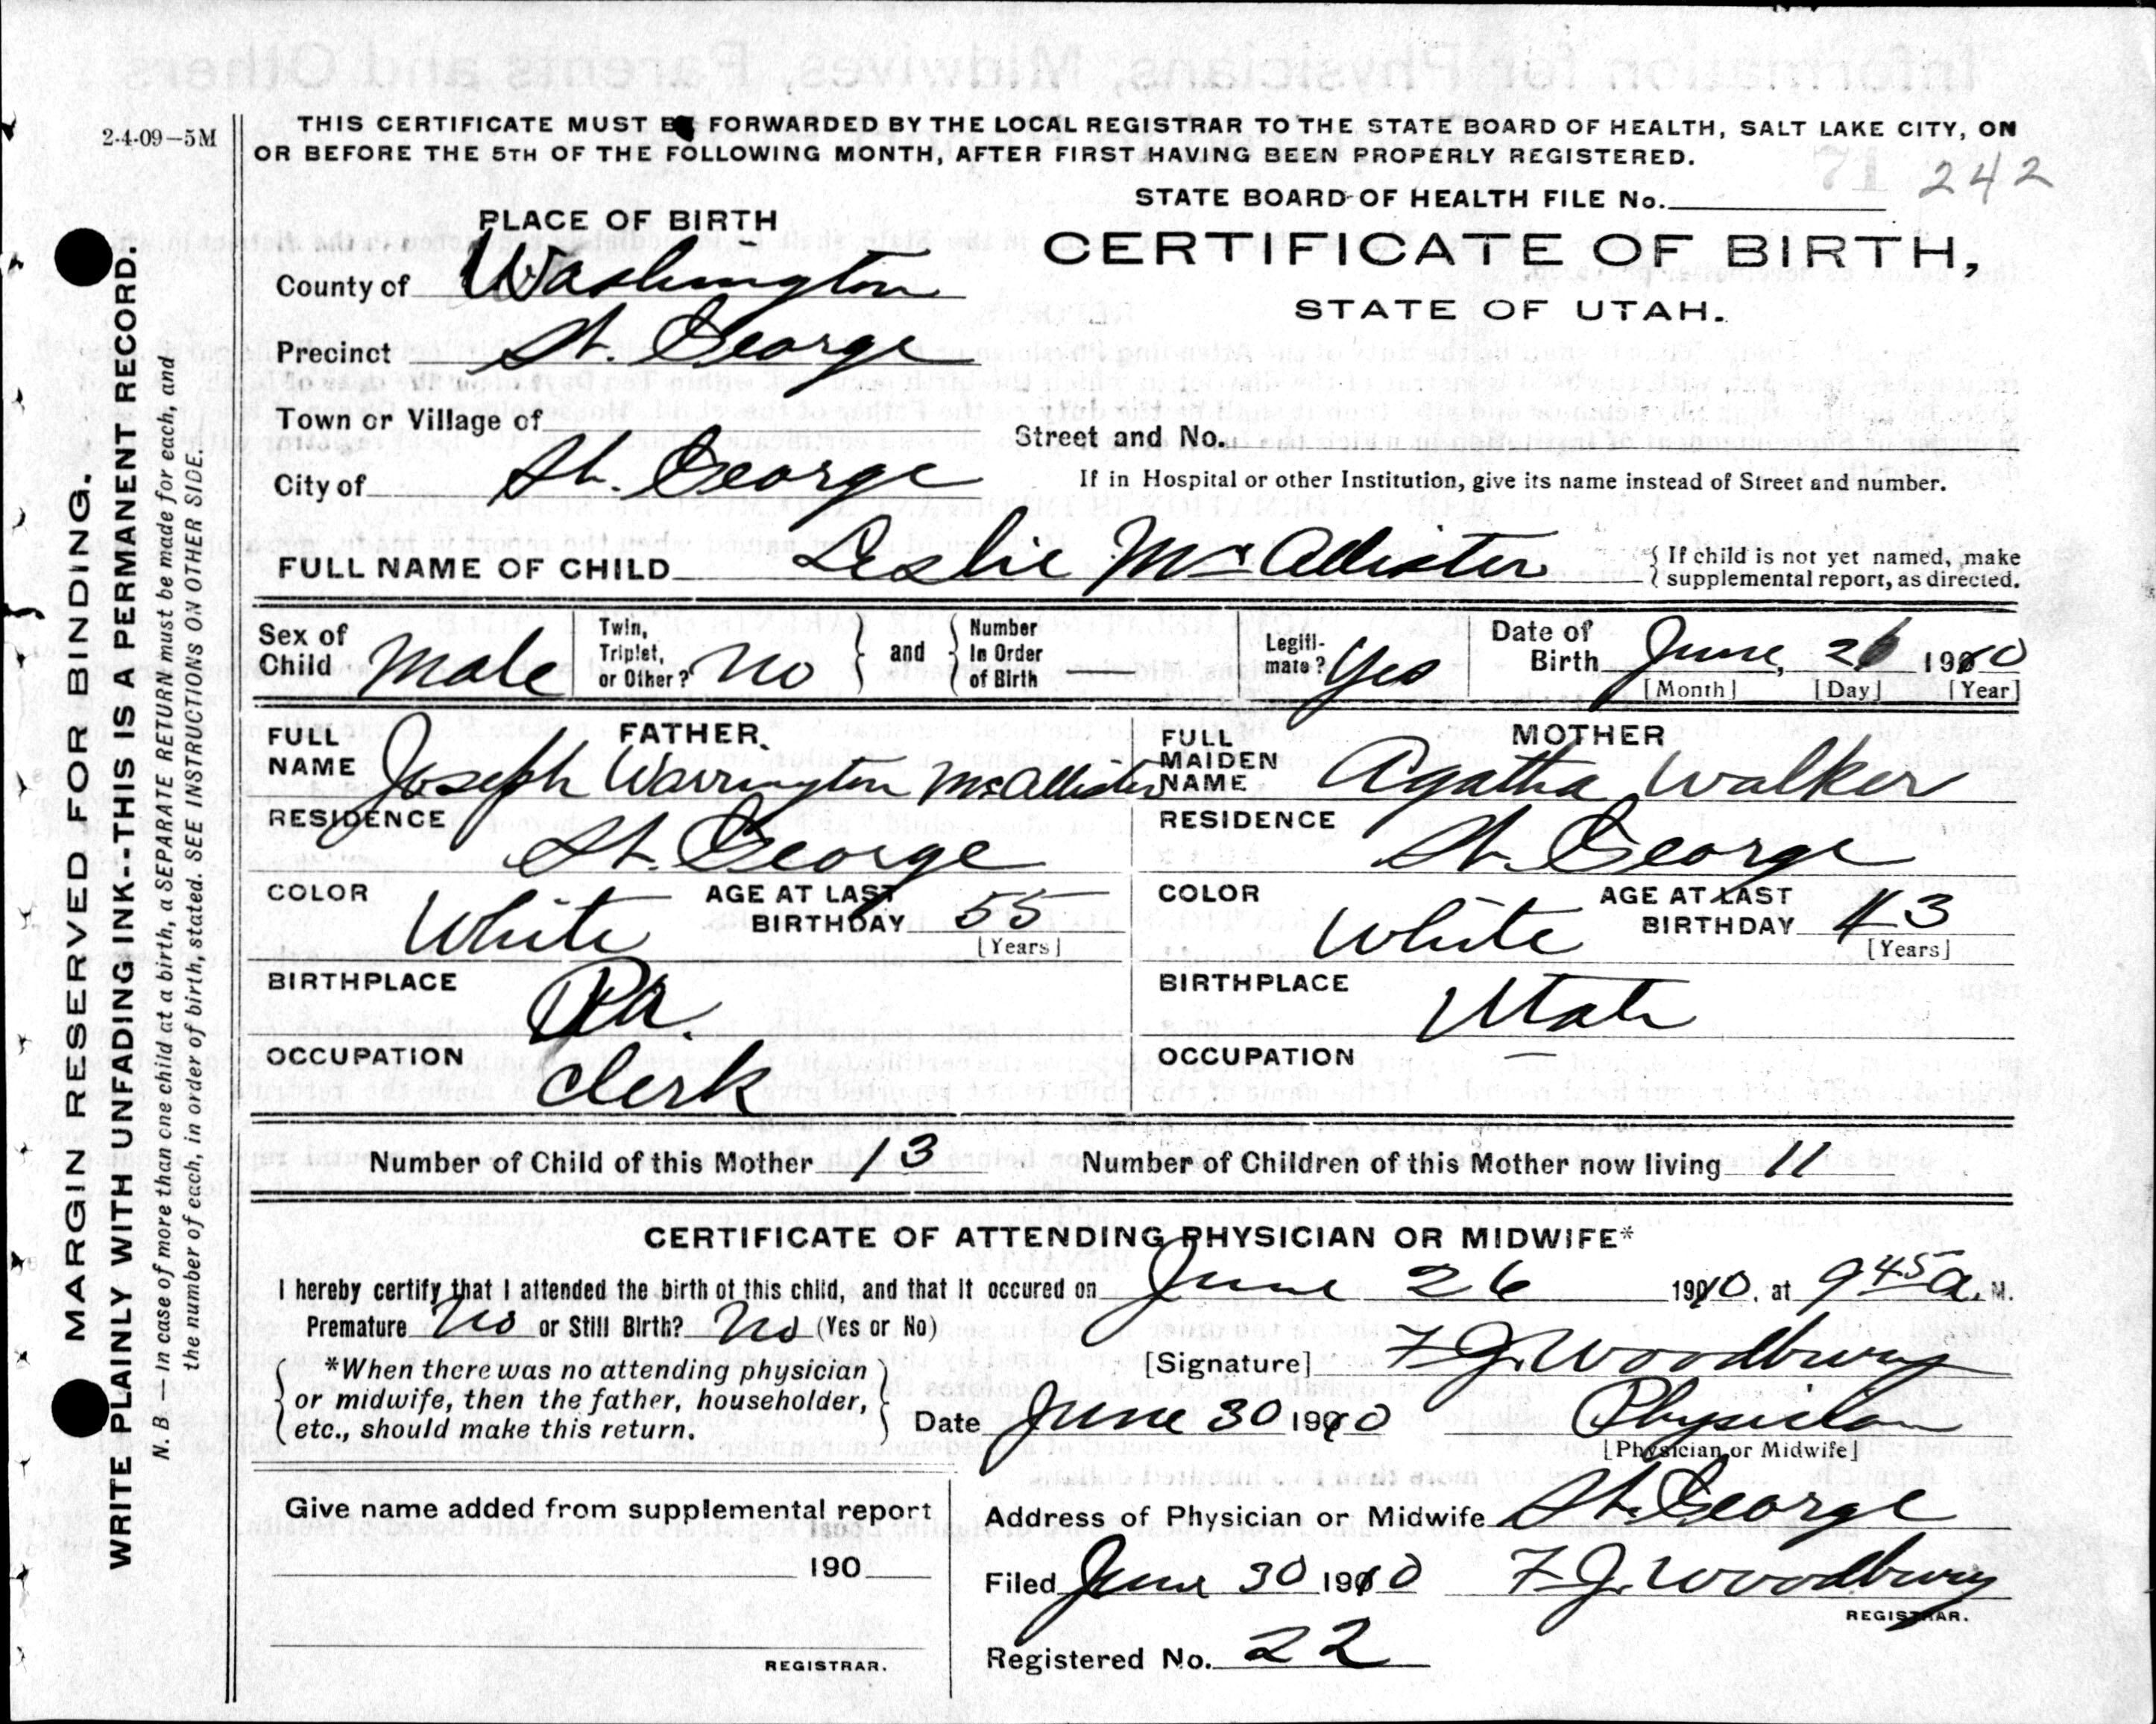 2-4-09–5M
THIS CERTIFICATE MUST BE FORWARDED BY THE LOCAL REGISTRAR TO THE STATE BOARD OF HEALTH, SALT LAKE CITY, ON
OR BEFORE THE 5TH OF THE FOLLOWING MONTH, AFTER FIRST HAVING BEEN PROPERLY REGISTERED.
71 242
STATE BOARD OF HEALTH FILE No.
PLACE OF BIRTH
CERTIFICATE OF BIRTH,
STATE OF UTAH.
County of Washington
Precinct St. George
Town or Village of
Street and No.
City of St. George
If in Hospital or other Institution, give its name instead of Street and number.
FULL NAME OF CHILD Leslie McAllister
If child is not yet named, make
supplemental report, as directed.
Sex of Child Male
Twin, Triplet, or Other? No
and
Number In Order of Birth
Legiti-mate? Yes
Date of Birth June, 26 1910
[Month] [Day] [Year]
FATHER
FULL NAME Joseph Warrington McAllister
RESIDENCE St. George
COLOR White
AGE AT LAST BIRTHDAY 55
[Years]
BIRTHPLACE Pa.
OCCUPATION Clerk
MOTHER
FULL MAIDEN NAME Agatha Walker
RESIDENCE St. George
COLOR White
AGE AT LAST BIRTHDAY 43
[Years]
BIRTHPLACE Utah
OCCUPATION —
Number of Child of this Mother 13
Number of Children of this Mother now living 11
CERTIFICATE OF ATTENDING PHYSICIAN OR MIDWIFE*
I hereby certify that I attended the birth of this child, and that it occured on June 26 1910, at 9 45 a. M.
Premature No or Still Birth? No (Yes or No)
[Signature] F J. Woodbury
*When there was no attending physician
or midwife, then the father, householder,
etc., should make this return.
Date June 30 1910
Physician
[Physician or Midwife]
Give name added from supplemental report
190
REGISTRAR.
Address of Physician or Midwife St. George
Filed June 30 1910 F J. Woodbury
REGISTRAR.
Registered No. 22
MARGIN RESERVED FOR BINDING.
WRITE PLAINLY WITH UNFADING INK--THIS IS A PERMANENT RECORD.
N. B.—In case of more than one child at a birth, a SEPARATE RETURN must be made for each, and
the number of each, in order of birth, stated. SEE INSTRUCTIONS ON OTHER SIDE.